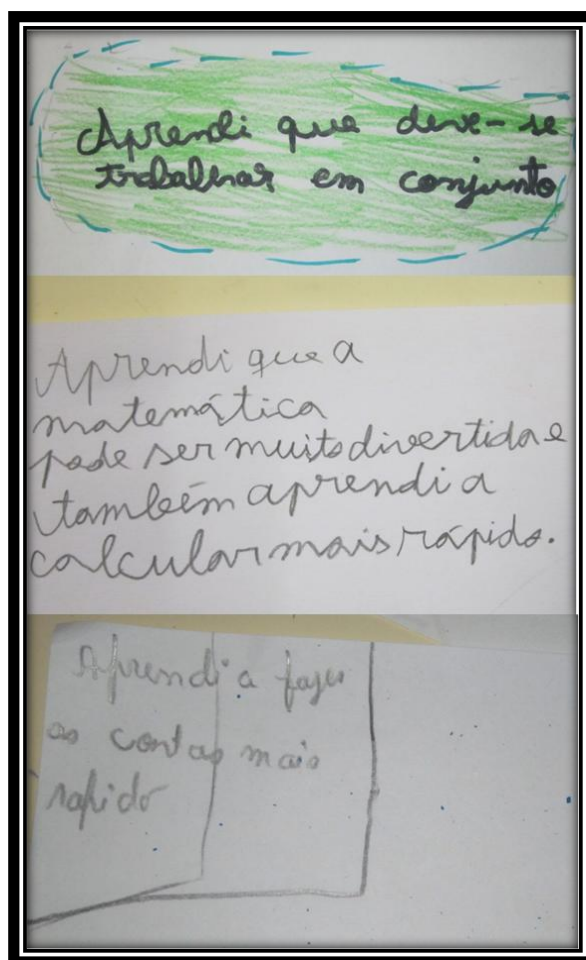 Aprendi que deve-se
trabalhar em conjunto
Aprendi que a
matemática
pode ser muito divertida e
também aprendi a
calcular mais rápido.
Aprendi a fazer
as contas mais
rapido